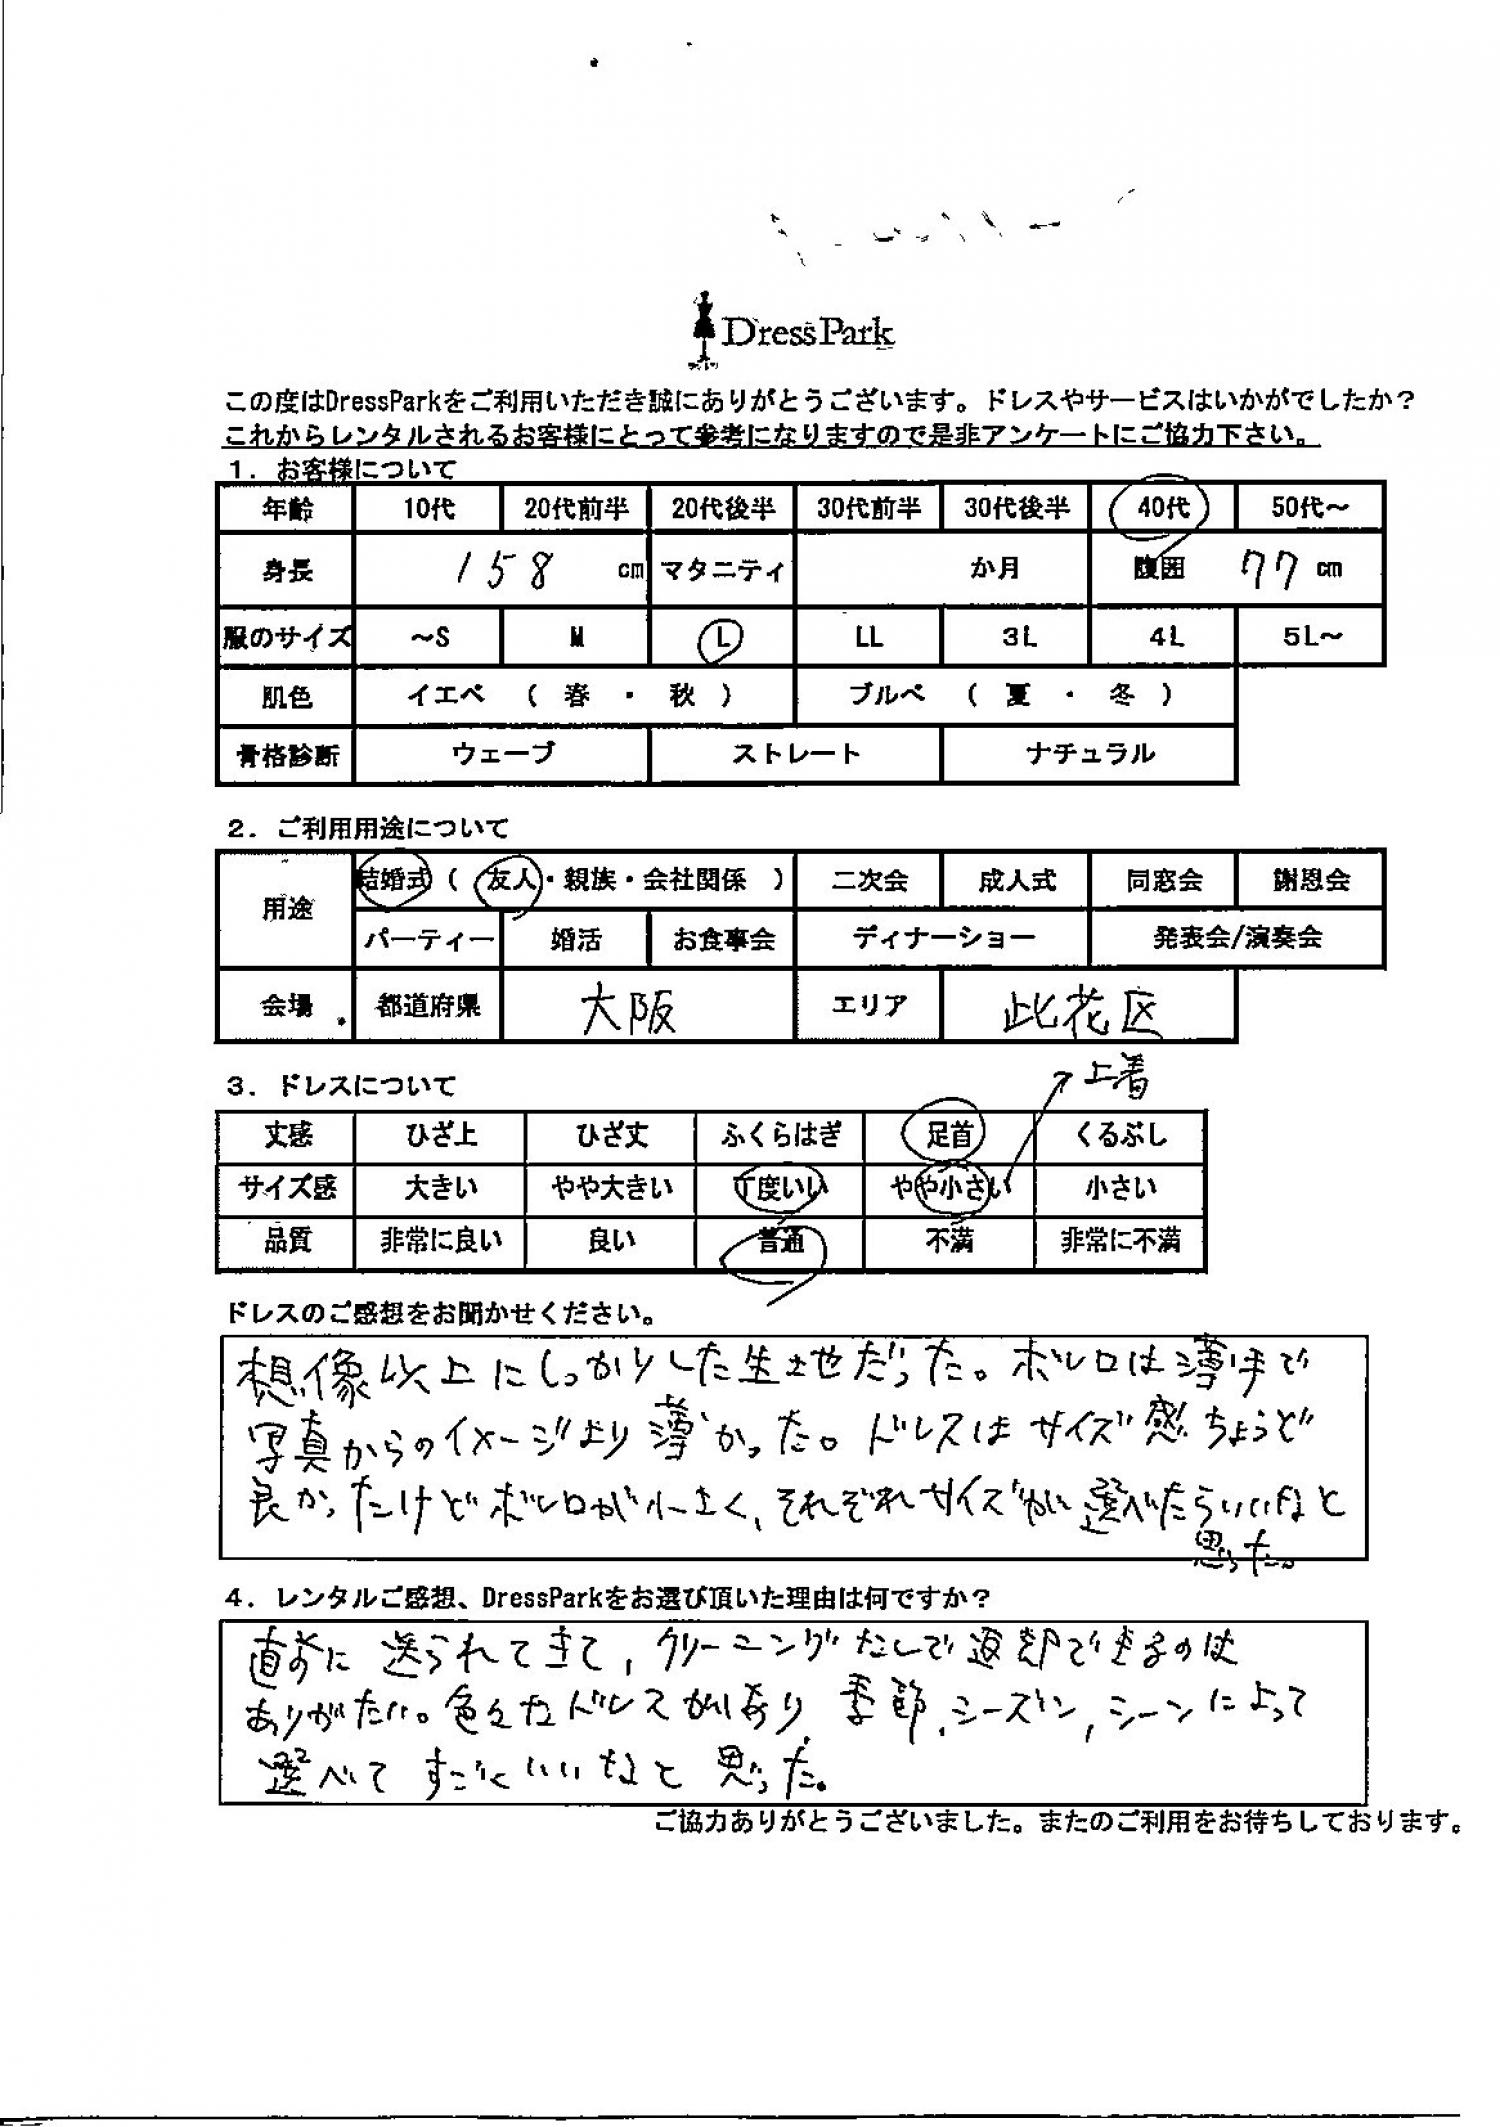 DressPark
この度はDressParkをご利用いただき誠にありがとうございます。ドレスやサービスはいかがでしたか?
これからレンタルされるお客様にとって参考になりますので是非アンケートにご協力下さい。
1. お客様について
年齢 10代 20代前半 20代後半 30代前半 30代後半 40代 50代～
身長 158 cm マタニティ か月 腹囲 77 cm
服のサイズ ～S M L LL 3L 4L 5L～
肌色 イエベ ( 春 ・ 秋 ) ブルベ ( 夏 ・ 冬 )
骨格診断 ウェーブ ストレート ナチュラル
2. ご利用用途について
用途 結婚式 ( 友人・親族・会社関係 ) 二次会 成人式 同窓会 謝恩会
パーティー 婚活 お食事会 ディナーショー 発表会/演奏会
会場 都道府県 大阪 エリア 此花区
3. ドレスについて
上着
丈感 ひざ上 ひざ丈 ふくらはぎ 足首 くるぶし
サイズ感 大きい やや大きい 丁度いい やや小さい 小さい
品質 非常に良い 良い 普通 不満 非常に不満
ドレスのご感想をお聞かせください。
想像以上にしっかりした生させだった。ボレロは薄手で
写真からのイメージより薄かった。ドレスはサイズ感ちょうど
良かったけどボレロが小さく、それぞれサイズが選べたらいいなと
思った。
4. レンタルご感想、DressParkをお選び頂いた理由は何ですか?
直前に送られてきて、クリーニングなしで返却できるのは
ありがたい。色々なドレスがあり、季節、シーズン、シーンによって
選べてすごくいいなと思った。
ご協力ありがとうございました。またのご利用をお待ちしております。